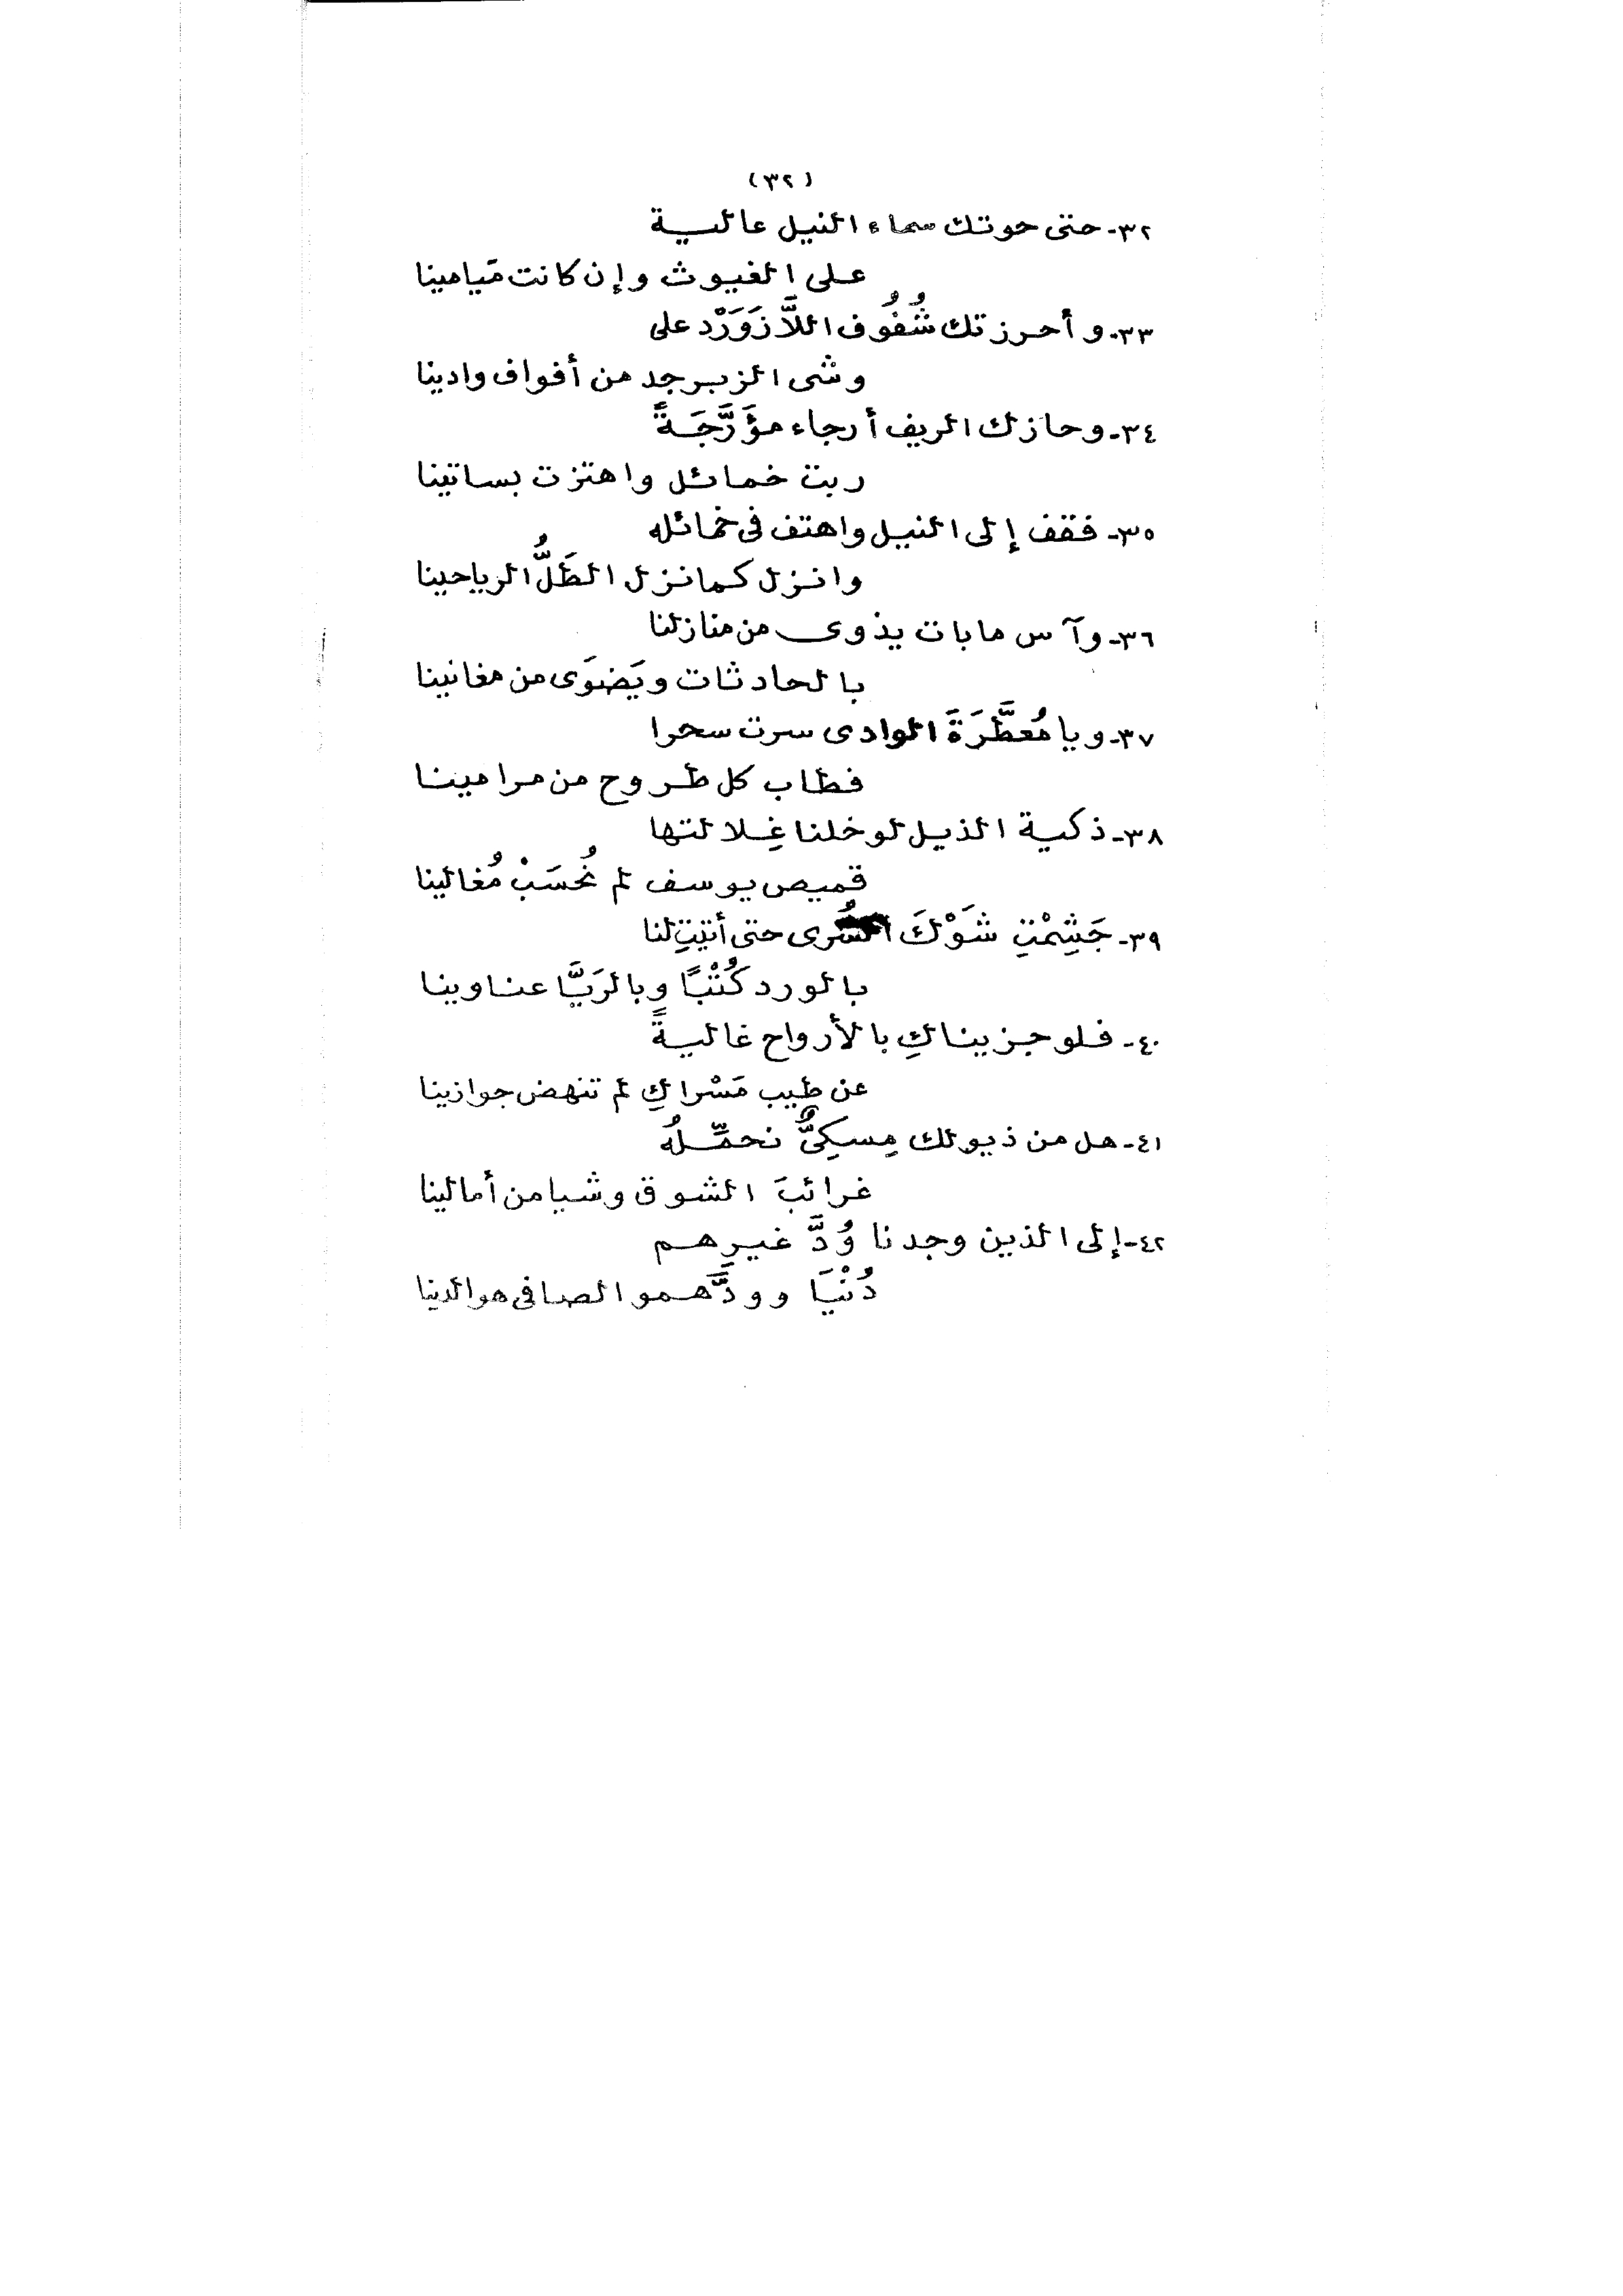 (٣٢)
٣٢- حتى حوتك سماء النيل عالية
على الغيوث وإن كانت مَيامينا
٣٣- وأحرزتك شُفُوف اللاَّزَوَرْد على
وشى الزبرجد من أفواف وادينا
٣٤- وحازك الريف أرجاء مؤَرَّجَةً
ربت خمائل واهتزت بساتينا
٣٥- فقف إلى النيل واهتف فى خمائله
وانزل كما نزل الطَلُّ الرياحينا
٣٦- وآس مابات يذوى من منازلنا
بالحادثات ويَضوَى من مغانينا
٣٧- ويا مُعَطَّرَةَ الوادى سرت سحرا
فطاب كل طروح من مرامينا
٣٨- ذكية الذيل لو خلنا غِلالتها
قميص يوسف لم نُحسَبْ مُغالينا
٣٩- جَشِمْتِ شَوْكَ السُّرى حتى أتيتِ لنا
بالورد كُتْبًا وبالرَيَّا عناوينا
٤٠- فلو جزيناكِ بالأرواح غاليةً
عن طِيب مَسْراكِ لم تنهض جوازينا
٤١- هل من ذيولك مِسكِىٌّ نحمِّلُه
غرائبَ الشوق وشيا من أمالينا
٤٢- إلى الذين وجدنا وُدَّ غيرِهم
دُنْيَا وودَّهمو الصافى هو الدينا